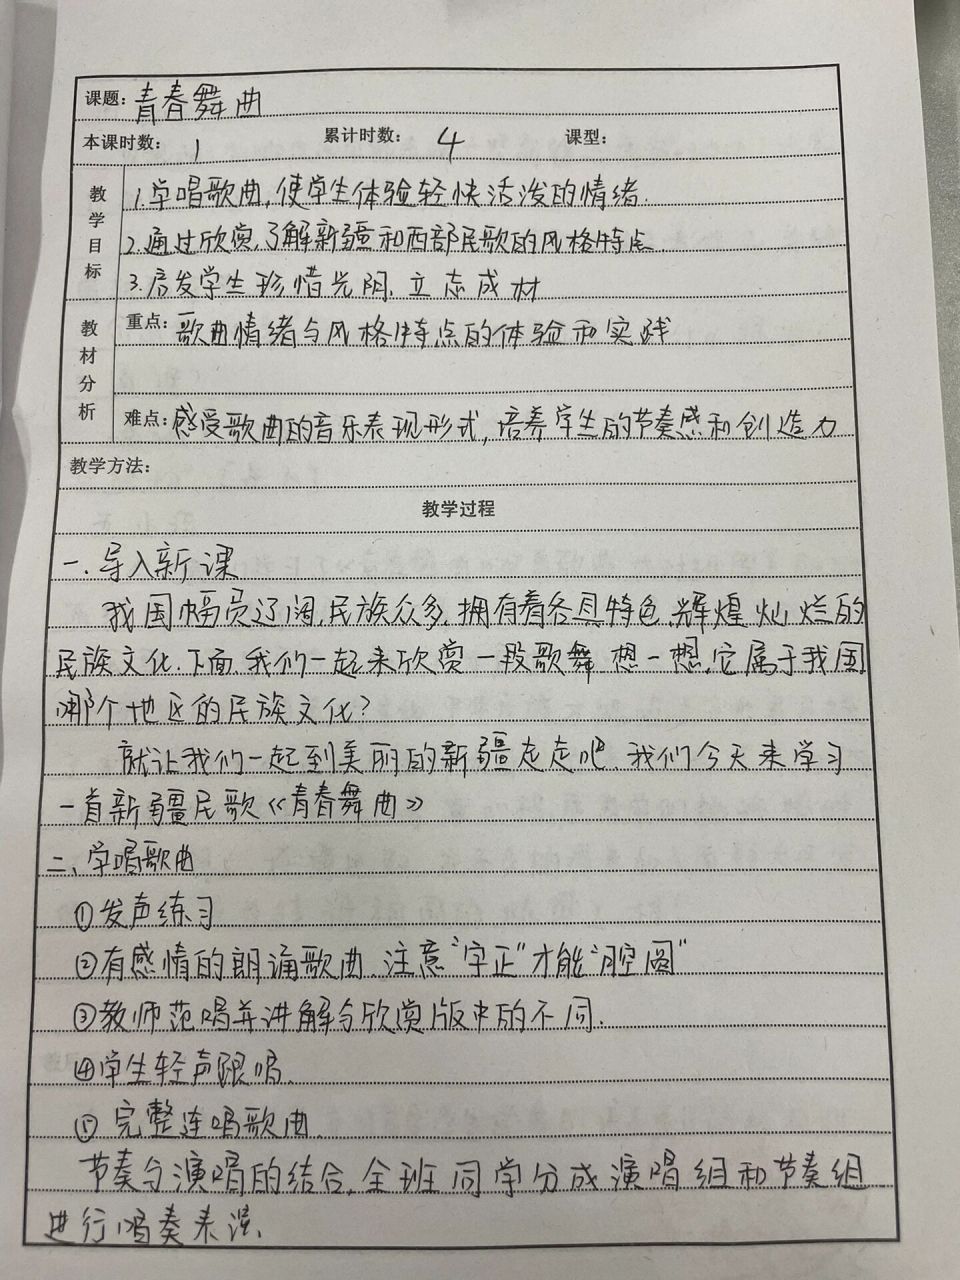 课题：青春舞曲
本课时数：1 累计时数：4 课型：
教学目标
1.学唱歌曲，使学生体验轻快活泼的情绪.
2.通过欣赏，了解新疆和西部民歌的风格特点
3.启发学生珍惜光阴、立志成材
教材分析
重点：歌曲情绪与风格特点的体验和实践
难点：感受歌曲的音乐表现形式，培养学生的节奏感和创造力
教学方法：
教学过程
一.导入新课
我国幅员辽阔，民族众多，拥有着各具特色，辉煌灿烂的
民族文化.下面，我们一起来欣赏一段歌舞 想一想，它属于我国
哪个地区的民族文化？
就让我们一起到美丽的新疆走走吧，我们今天来学习
一首新疆民歌《青春舞曲》
二、学唱歌曲
①发声练习
②有感情的朗诵歌曲、注意“字正”才能“腔圆”
③教师范唱并讲解与欣赏版中的不同.
④学生轻声跟唱.
⑤完整连唱歌曲.
节奏与演唱的结合，全班同学分成演唱组和节奏组
进行唱奏表演.